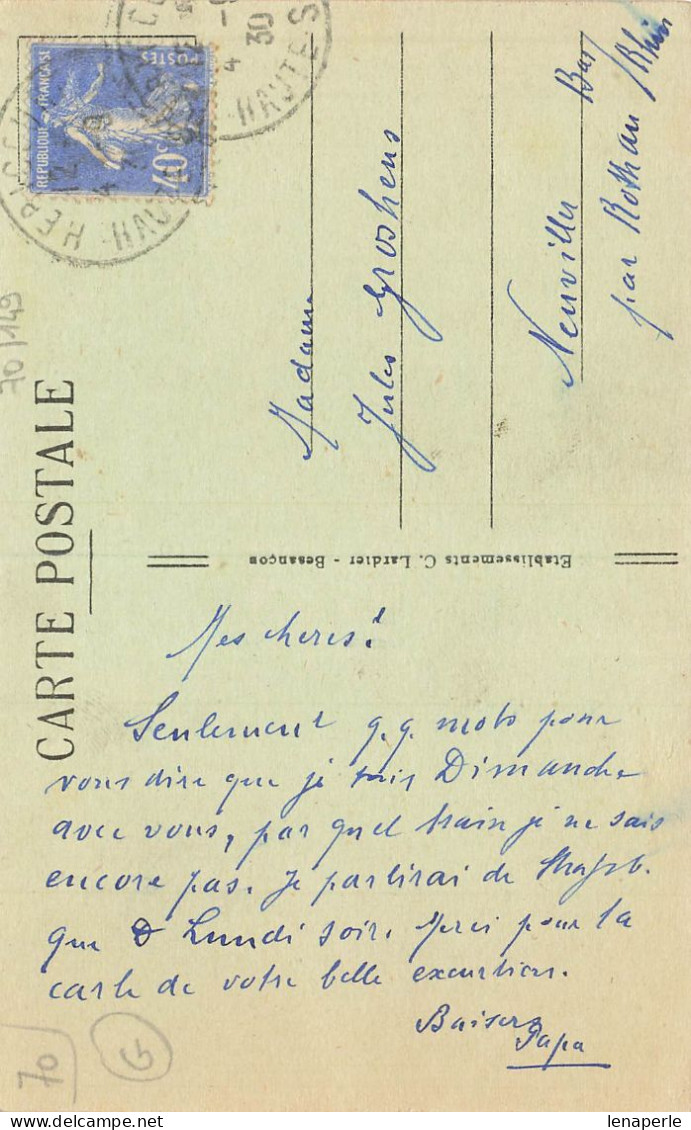 CARTE POSTALE
REPUBLIQUE FRANÇAISE
POSTES
40
HAUTE S
30
70/149
Madame
Jules Groshens
Neuviller
par Rothau Bas/Rhin
Etablissements C. Lardier - Besançon
Mes cheres!
Seulement q.q. mots pour
vous dire que je suis Dimanche
avec vous, par quel train je ne sais
encore pas. Je partirai de Strasb.
que Lundi soir. Merci pour la
carte de votre belle excursion.
Baisers
Papa
70
G
lenaperle